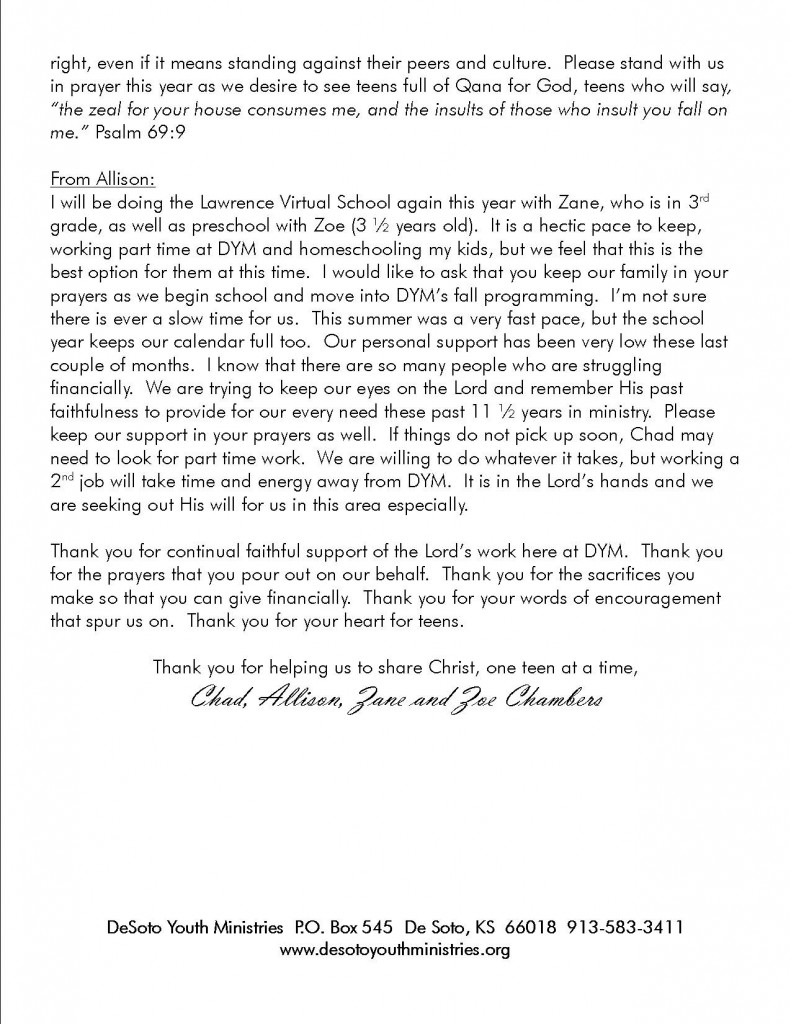 right, even if it means standing against their peers and culture.  Please stand with us
in prayer this year as we desire to see teens full of Qana for God, teens who will say,
“the zeal for your house consumes me, and the insults of those who insult you fall on
me.” Psalm 69:9
From Allison:
I will be doing the Lawrence Virtual School again this year with Zane, who is in 3rd
grade, as well as preschool with Zoe (3 ½ years old).  It is a hectic pace to keep,
working part time at DYM and homeschooling my kids, but we feel that this is the
best option for them at this time.  I would like to ask that you keep our family in your
prayers as we begin school and move into DYM’s fall programming.  I’m not sure
there is ever a slow time for us.  This summer was a very fast pace, but the school
year keeps our calendar full too.  Our personal support has been very low these last
couple of months.  I know that there are so many people who are struggling
financially.  We are trying to keep our eyes on the Lord and remember His past
faithfulness to provide for our every need these past 11 ½ years in ministry.  Please
keep our support in your prayers as well.  If things do not pick up soon, Chad may
need to look for part time work.  We are willing to do whatever it takes, but working a
2nd job will take time and energy away from DYM.  It is in the Lord’s hands and we
are seeking out His will for us in this area especially.
Thank you for continual faithful support of the Lord’s work here at DYM.  Thank you
for the prayers that you pour out on our behalf.  Thank you for the sacrifices you
make so that you can give financially.  Thank you for your words of encouragement
that spur us on.  Thank you for your heart for teens.
Thank you for helping us to share Christ, one teen at a time,
Chad, Allison, Zane and Zoe Chambers
DeSoto Youth Ministries  P.O. Box 545  De Soto, KS  66018  913-583-3411
www.desotoyouthministries.org